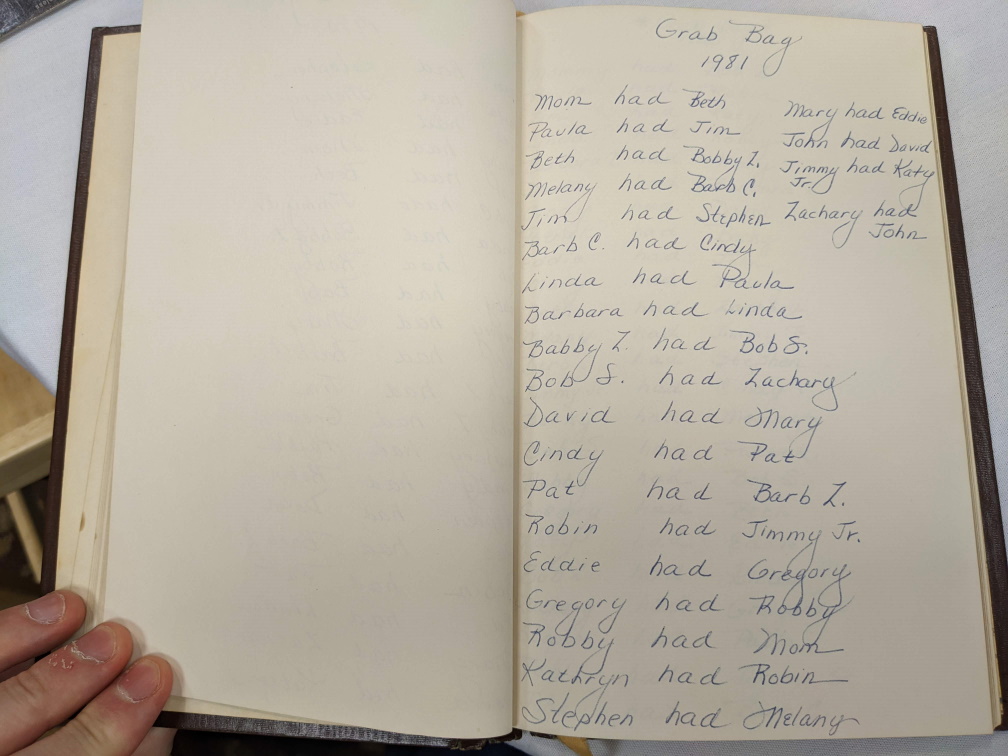 Grab Bag
1981
Mom had Beth
Paula had Jim
Beth had Bobby Z.
Melany had Barb C.
Jim had Stephen
Barb C. had Cindy
Linda had Paula
Barbara had Linda
Babby Z. had Bob S.
Bob S. had Zachary
David had Mary
Cindy had Pat
Pat had Barb Z.
Robin had Jimmy Jr.
Eddie had Gregory
Gregory had Robby
Robby had Mom
Kathryn had Robin
Stephen had Melany
Mary had Eddie
John had David
Jimmy had Katy
Jr.
Zachary had
John